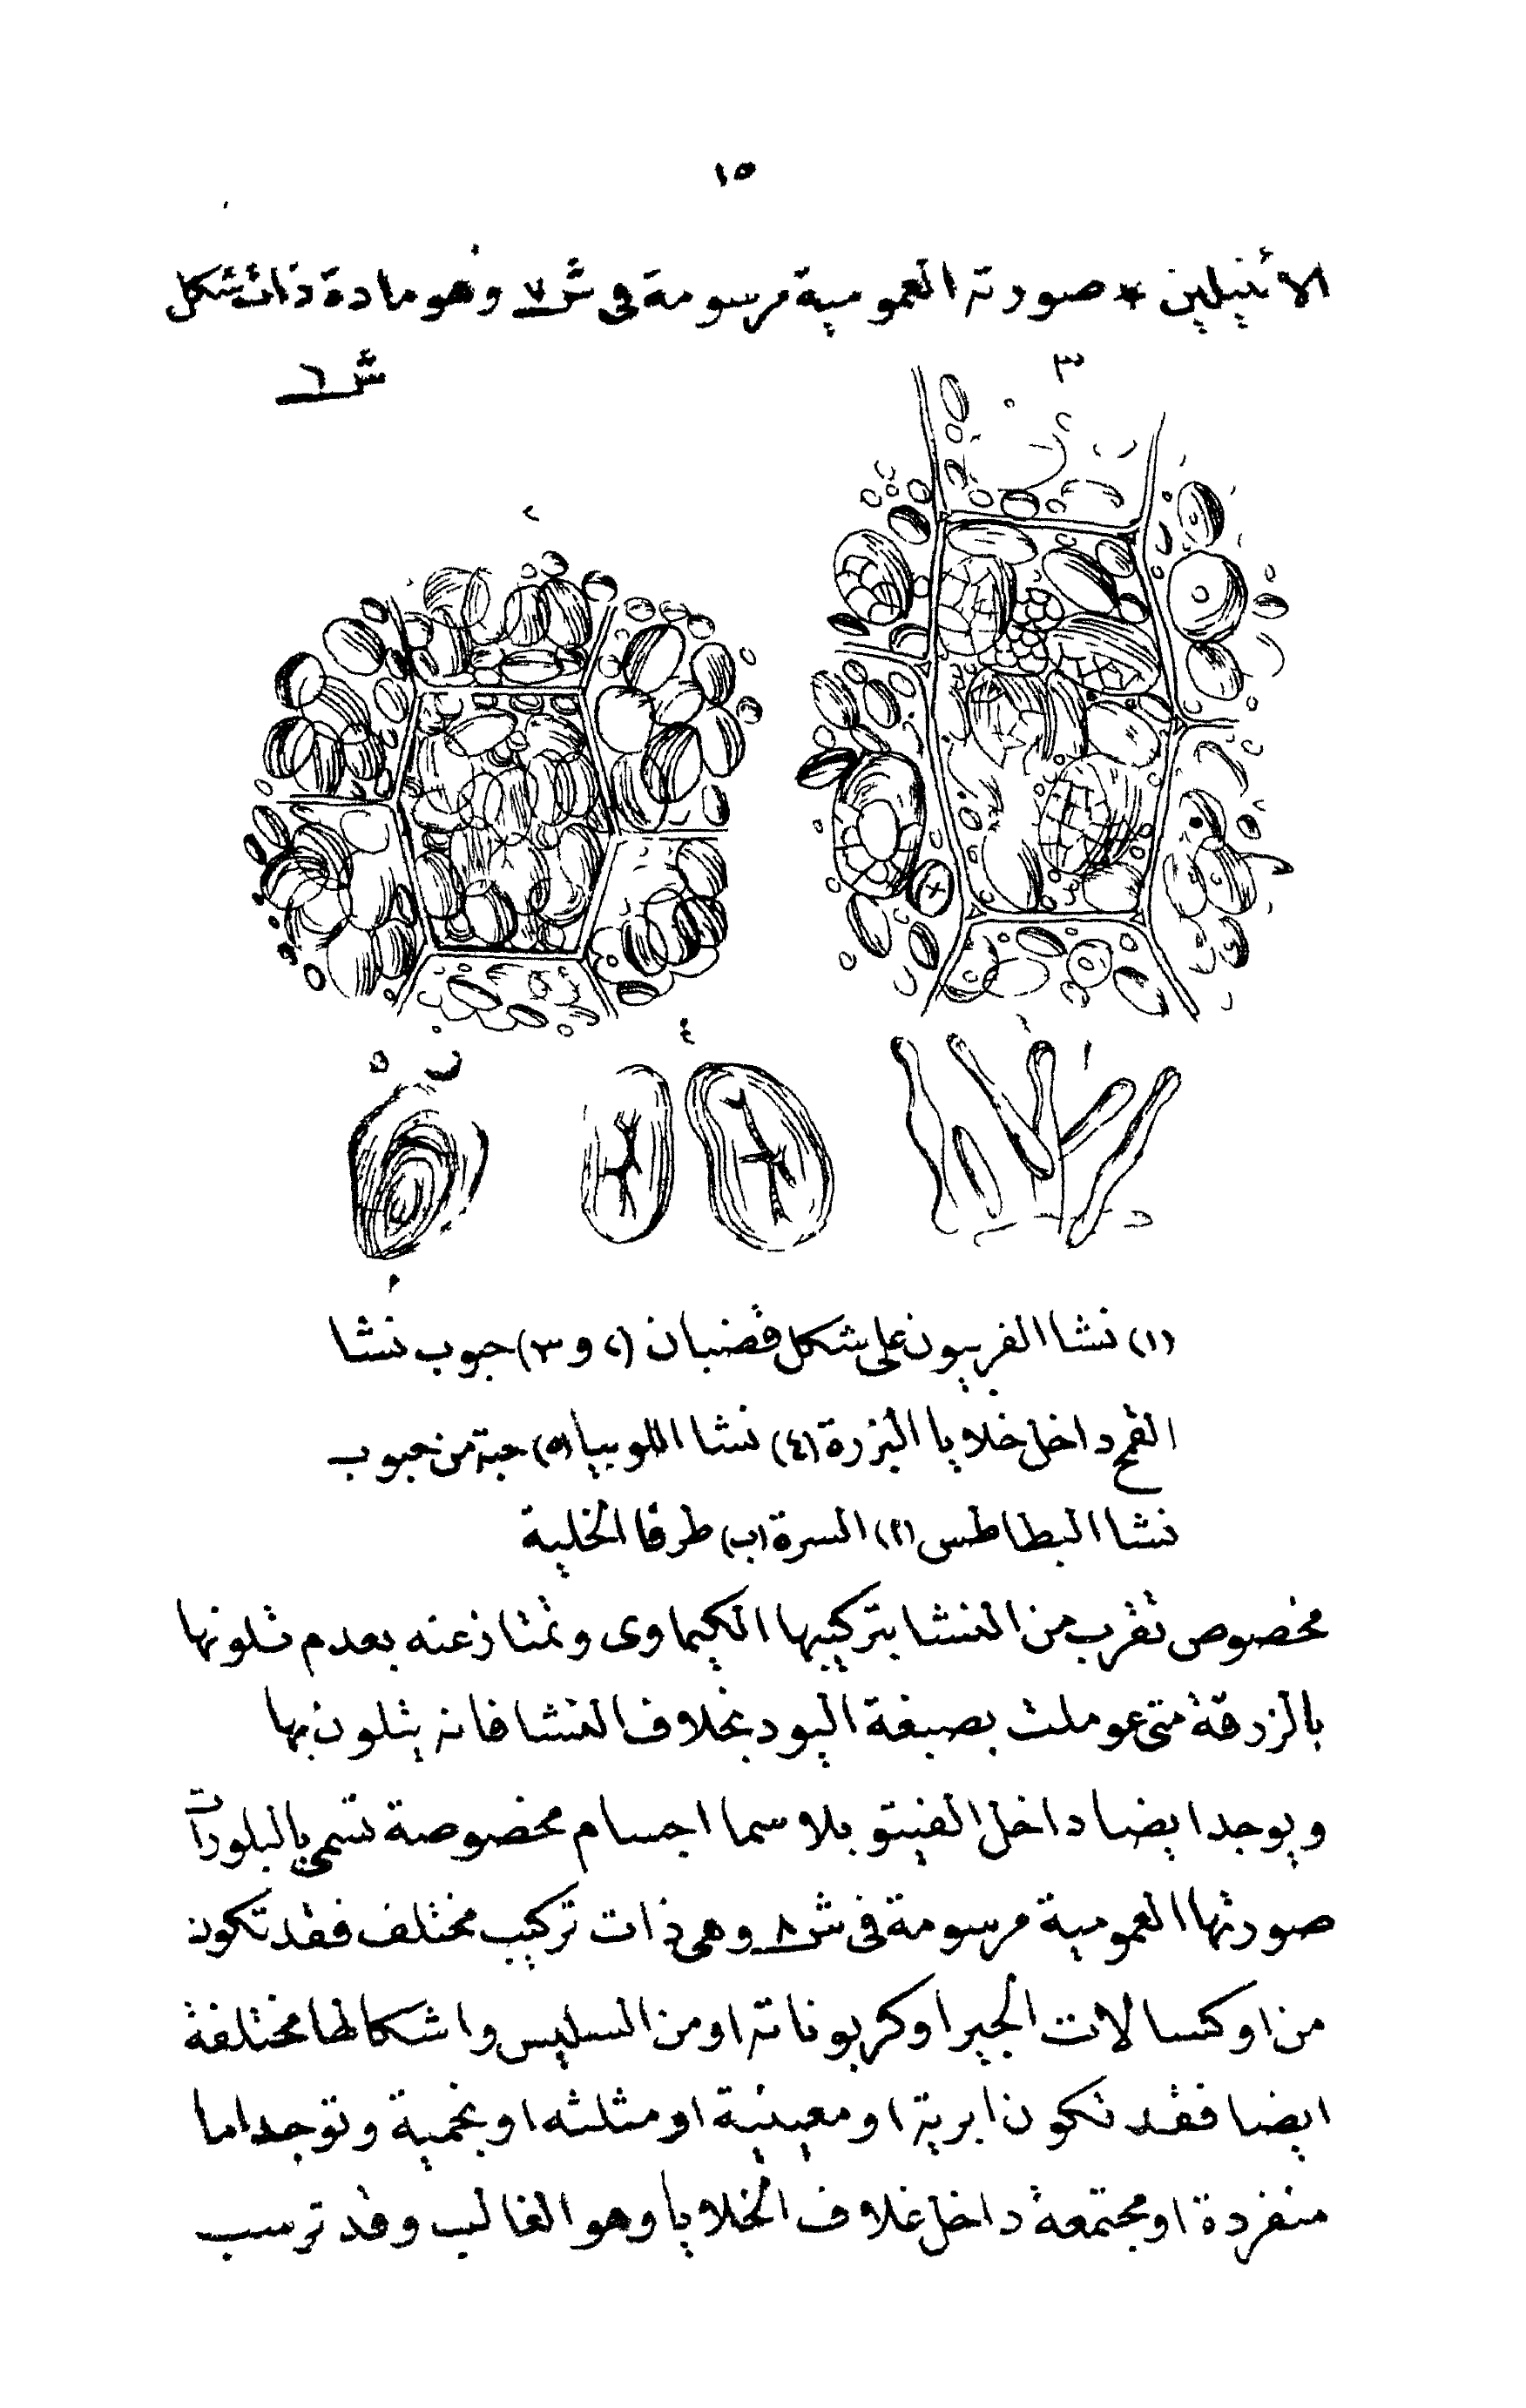 ١٥
الأنيلين * صورته العمومية مرسومة في ش ٧ وهو مادة ذات شكل
ش ٦
٣
٢
٤
١
٥ ب
ا
(١) نشا الفربيون على شكل قضبان (٢ و ٣) حبوب نشا
القمح داخل خلايا البزرة (٤) نشا اللوبيا (٥) حبة من حبوب
نشا البطاطس (ا) السرة (ب) طرفا الخلية
مخصوص تقرب من النشا بتركيبها الكيماوى وتمتاز عنه بعدم تلونها
بالزرقة متى عوملت بصبغة اليود بخلاف النشا فانه يتلون بها
ويوجد ايضا داخل الفيتو بلاسما اجسام مخصوصة تسمى بالبلورات
صورتها العمومية مرسومة فى ش ٨ وهى ذات تركيب مختلف فقد تكون
من اوكسالات الجير او كربوناته او من السليس واشكالها مختلفة
ايضا فقد تكون ابرية او معينية او مثلثه او نجمية وتوجد اما
منفردة او مجتمعة داخل غلاف الخلايا وهو الغالب وقد ترسب